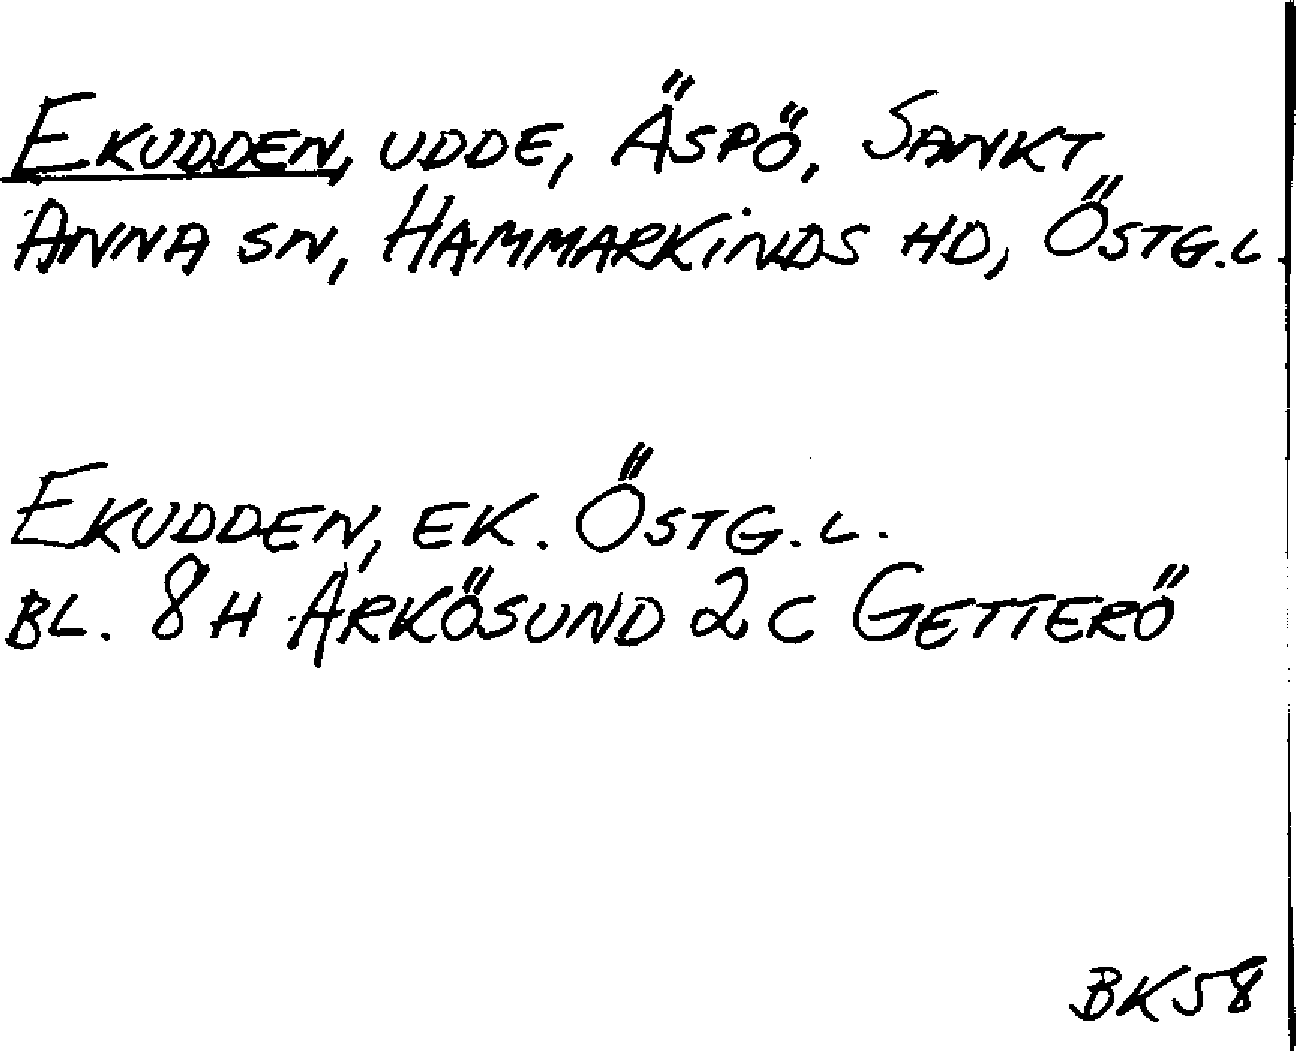 EKUDDEN, UDDE, ÄSPÖ, SANKT
ANNA SN, HAMMARKINDS HD, ÖSTG.L.
EKUDDEN, EK. ÖSTG.L.
BL. 8H ARKÖSUND 2C GETTERÖ
BK58